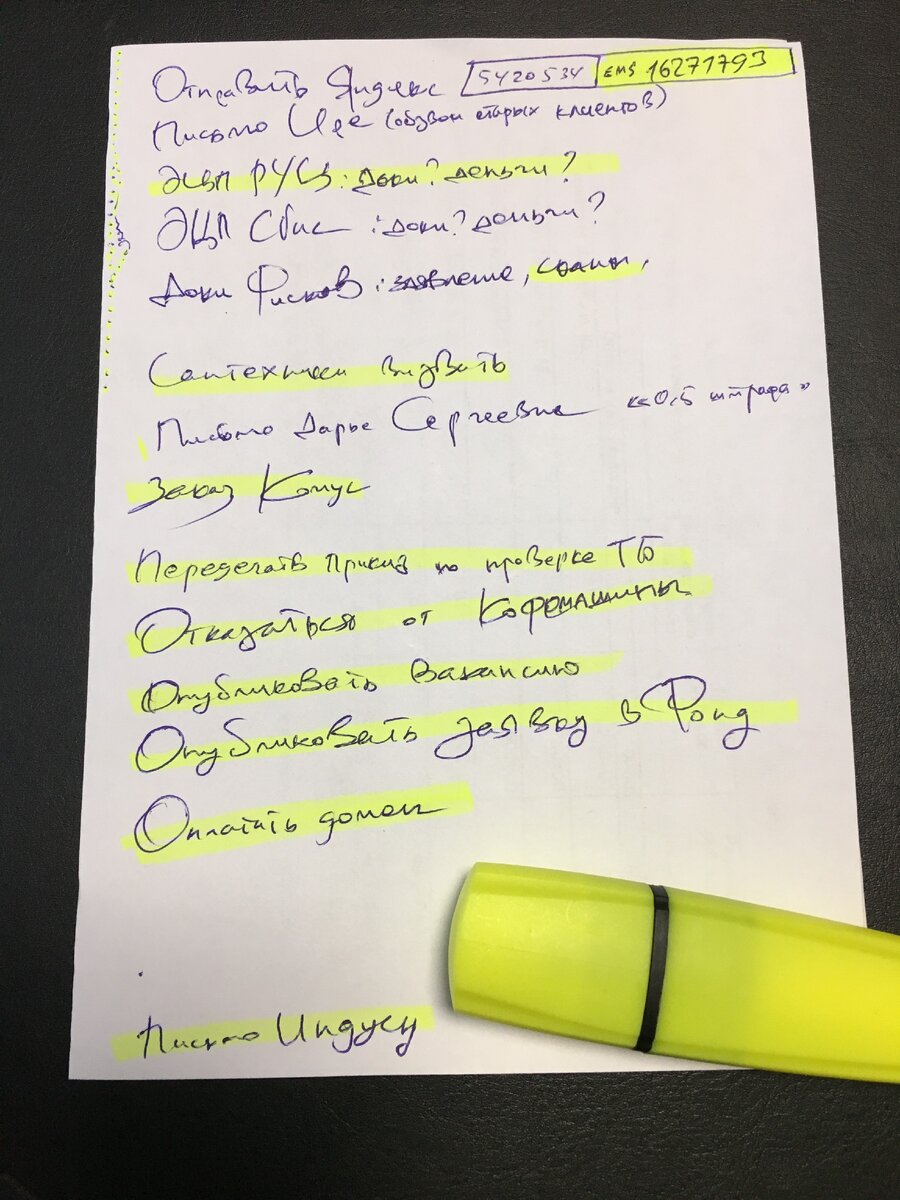 Отправить Яндекс 5420534 EMS 16271793
Письмо Ире (обзвон старых клиентов)
ЭЦП РУСЦ: доки? деньги?
ЭЦП Сбис: доки? деньги?
Доки Фисков: заявление, сканы,
Сантехника вызвать
Письмо Дарье Сергеевне «0,5 штрафа»
Заказ Комус
Переделать приказ по проверке ТБ
Отказаться от Кофемашины
Опубликовать Вакансию
Опубликовать в Фонд
Оплатить домен
Письмо Индусу